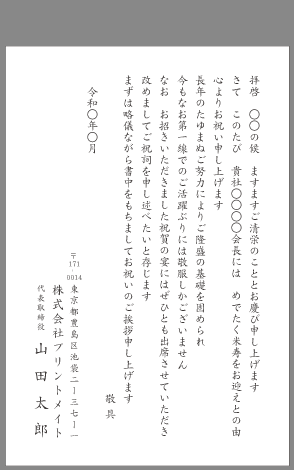 拝啓　〇〇の候　ますますご清栄のこととお慶び申し上げます
さて　このたび　貴社〇〇〇〇会長には　めでたく米寿をお迎えとの由
心よりお祝い申し上げます
長年のたゆまぬご努力によりご隆盛の基礎を固められ
今もなお第一線でのご活躍ぶりには敬服しかございません
なお　お招きいただきました祝賀の宴にはぜひとも出席させていただき
改めましてご祝詞を申し述べたいと存じます
まずは略儀ながら書中をもちましてお祝いのご挨拶申し上げます
敬具
令和〇年〇月
〒171-0014
東京都豊島区池袋二-三七-一
株式会社プリントメイト
代表取締役　山田太郎